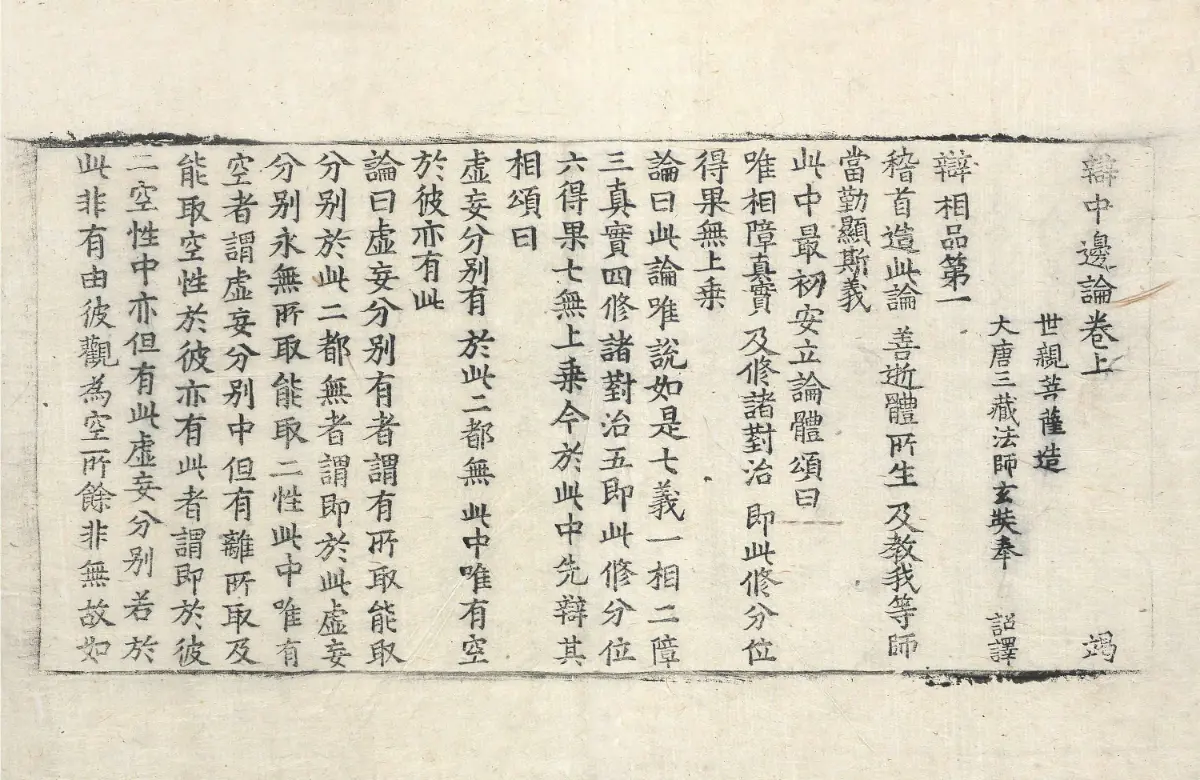 辯中邊論卷上 竭
世親菩薩造
大唐三藏法師玄奘奉 詔譯
辯相品第一
稽首造此論 善逝體所生 及教我等師
當勤顯斯義
此中最初安立論體頌曰
唯相障真實 及修諸對治 即此修分位
得果無上乗
論曰此論唯說如是七義一相二障
三真實四修諸對治五即此修分位
六得果七無上乗今於此中先辯其
相頌曰
虛妄分别有 於此二都無 此中唯有空
於彼亦有此
論曰虛妄分别有者謂有所取能取
分别於此二都無者謂即於此虛妄
分别永無所取能取二性此中唯有
空者謂虛妄分别中但有離所取及
能取空性於彼亦有此者謂即於彼
二空性中亦但有此虛妄分别若於
此非有由彼觀為空所餘非無故如